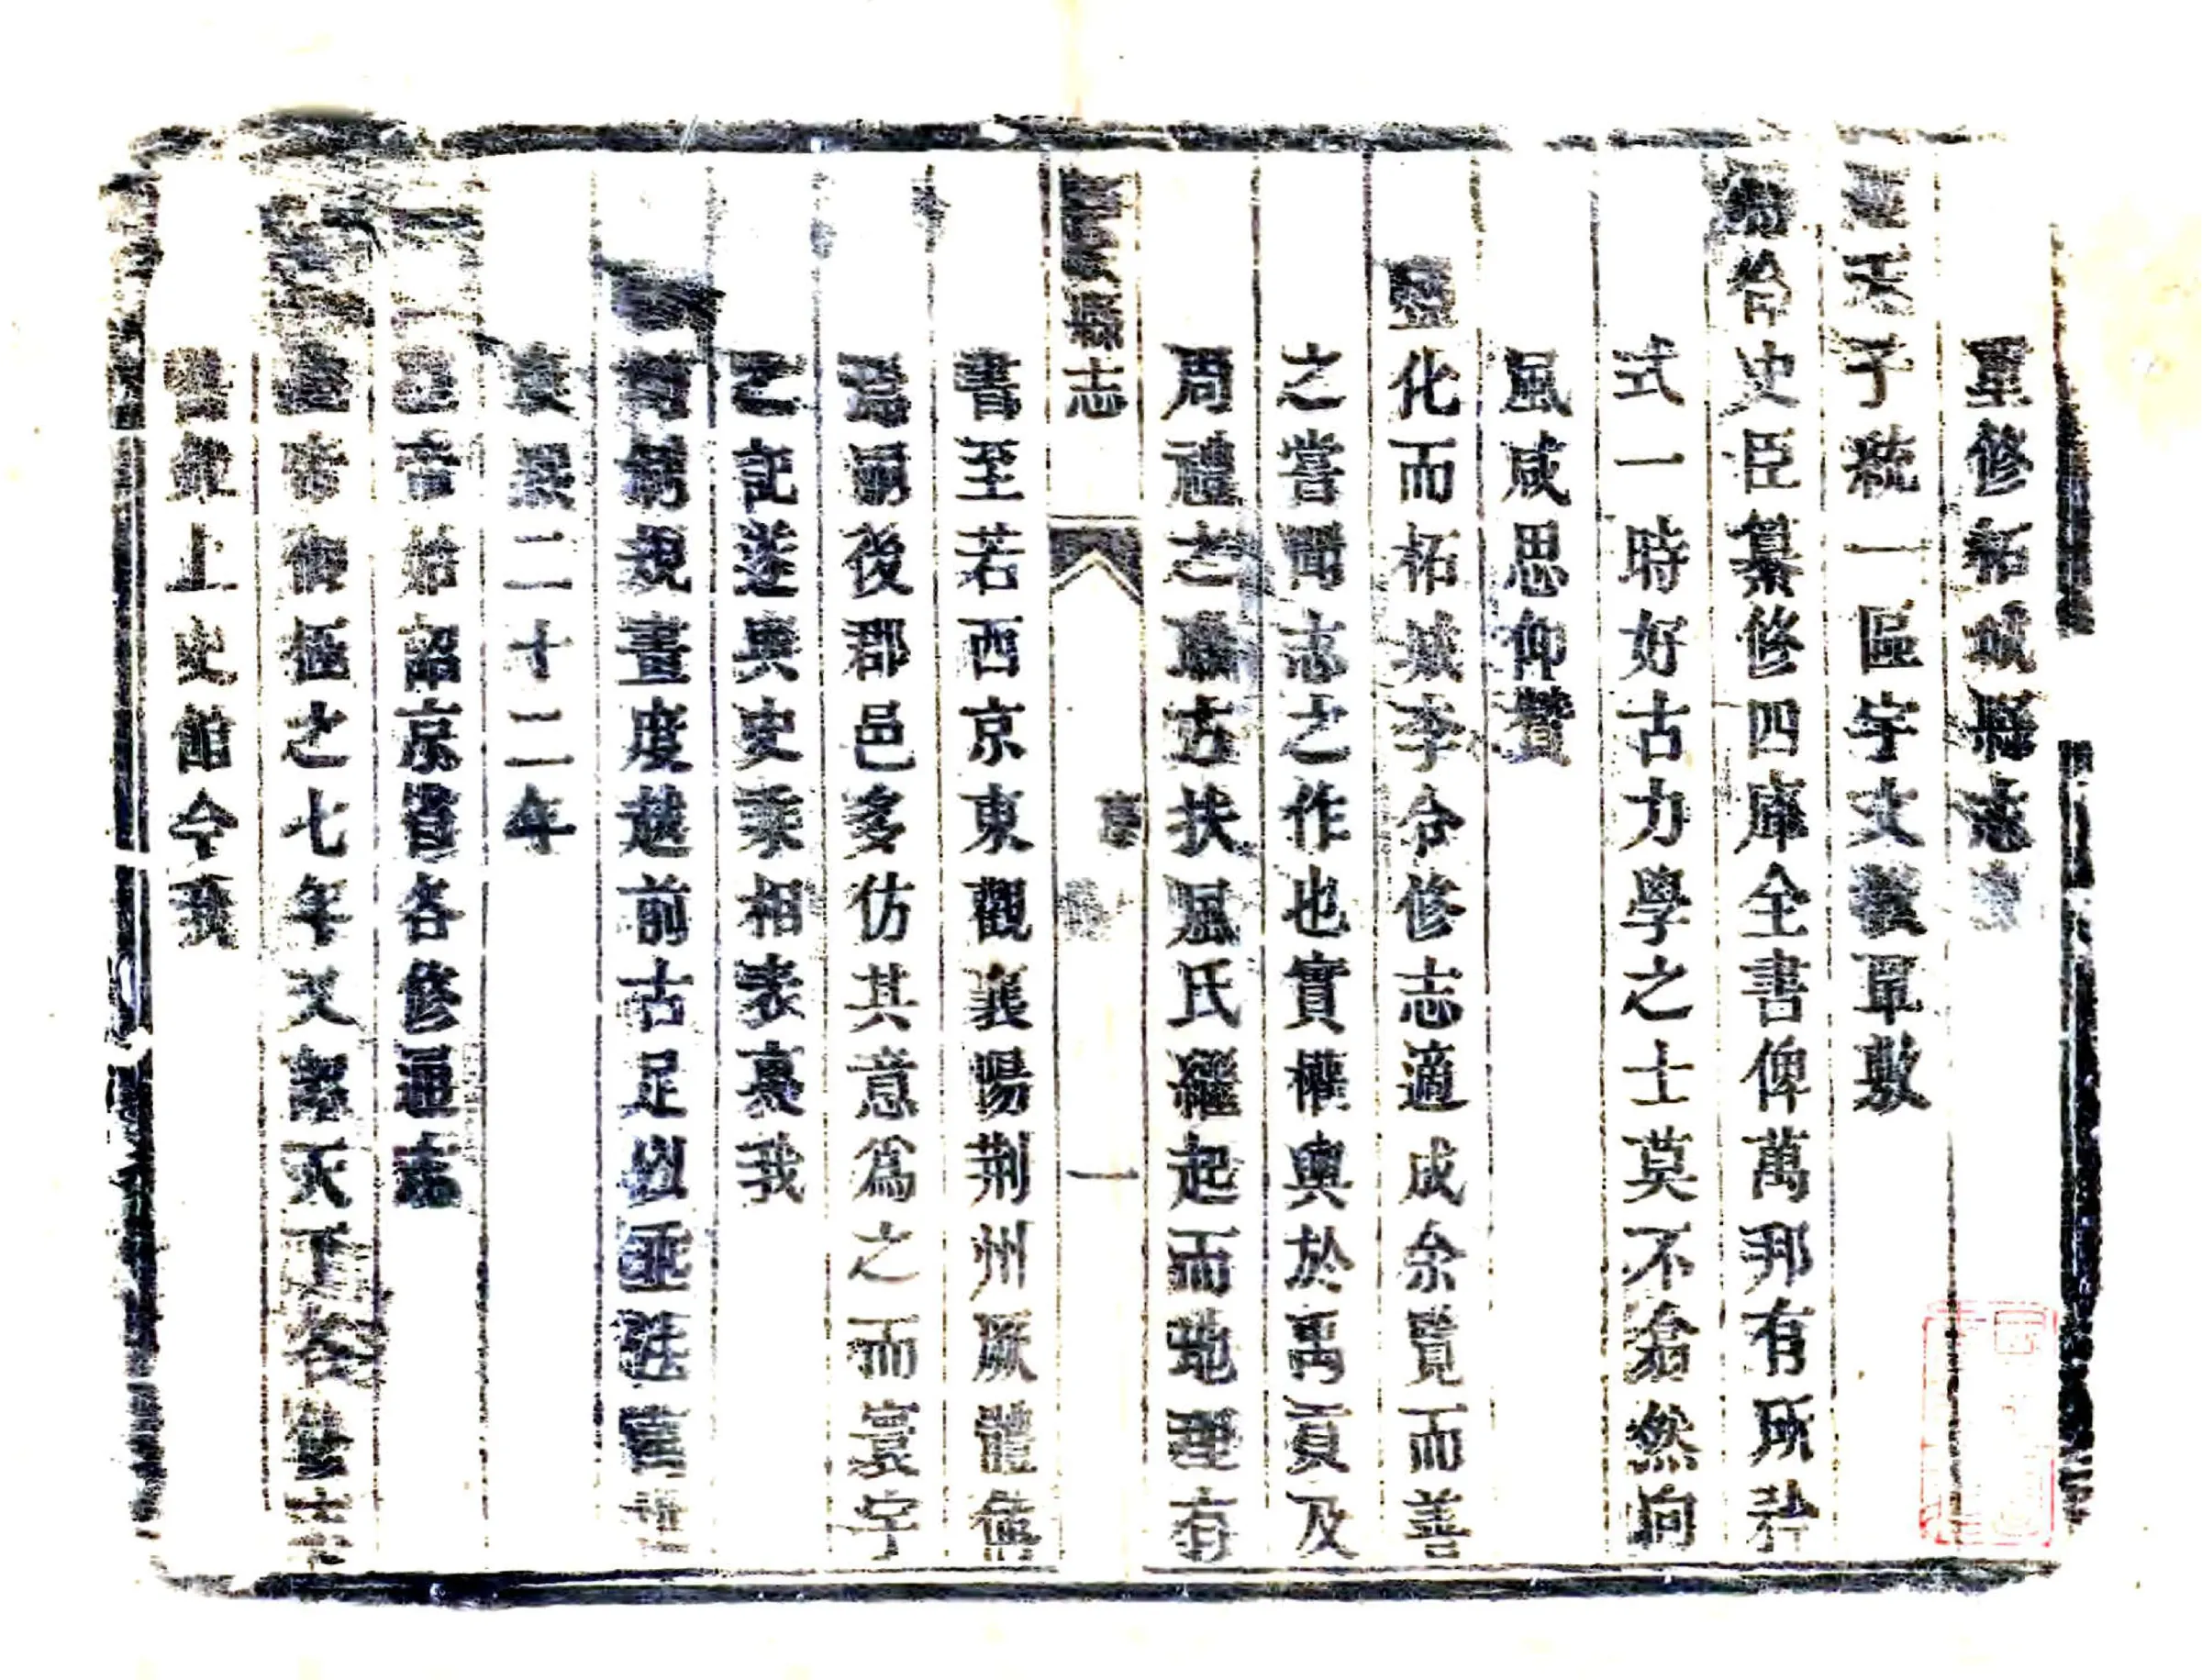 重修柘城縣志
天子統一區宇文教覃敷
命史臣纂修四庫全書俾萬邦有所矜
式一時好古力學之士莫不翕然向
風咸思仰贊
盛化而柘城李令修志適成余覽而善
之嘗聞志之作也實權輿於禹貢及
周禮之職方扶風氏繼起而地理有
縣志
序
一
書至若西京東觀襄陽荆州厥體備
焉嗣後郡邑多仿其意爲之而寰宇
之記遂與史乘相表裏我
朝規畫度越前古足以垂
康熙二十二年
帝始詔京省各修通志
帝御極之七年又詔天下各修志
書上史館今我